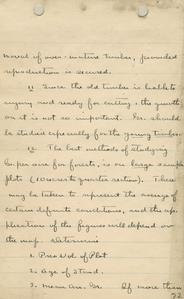 moval of over-mature timber, provided
reproduction is secured.
11 Since the old timber is liable to
injury and ready for cutting, the growth
on it is not so important. Gr. should
be studied especially for the young timber.
12 The best methods of studying
Gr. per acre for forests, is on large sample
plots (10 acres to quarter section). These
may be taken to represent the average of
certain definite conditions, and the ap-
plication of the figures will depend on
the map. Determine
1. Present Vol of Plot
2. Age of Stand.
3. Mean Ann. Gr. If more than